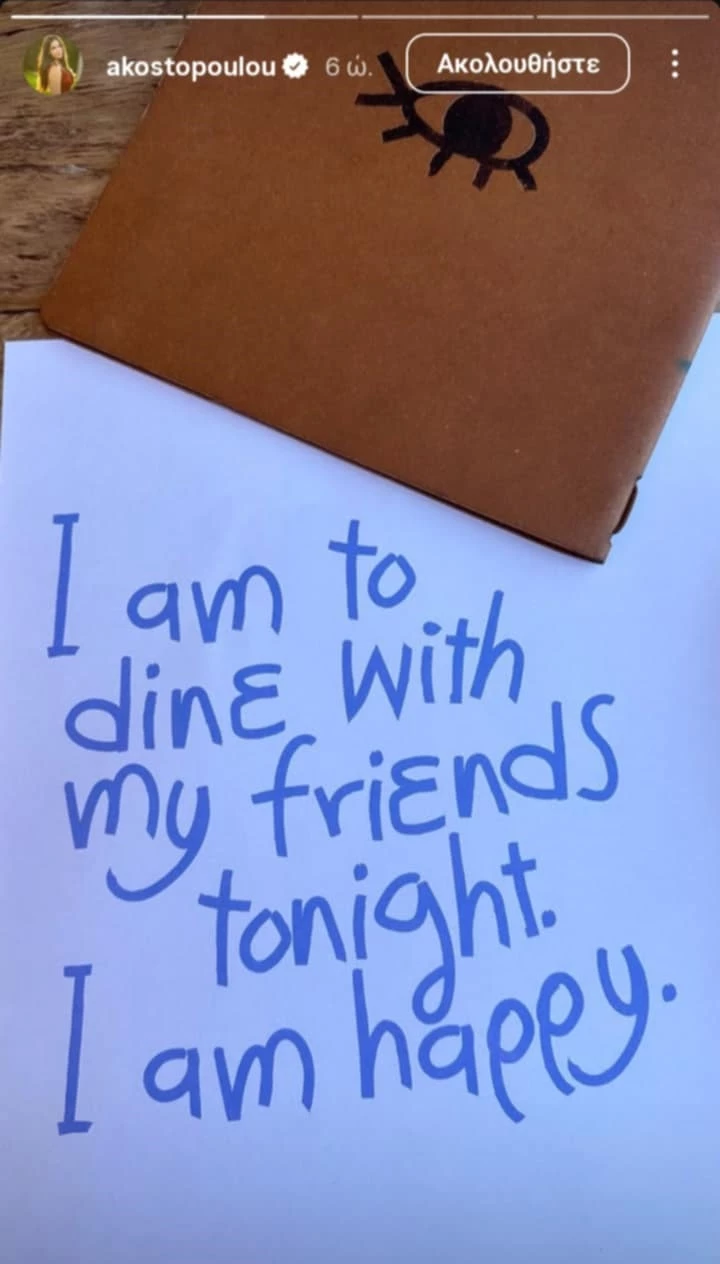 akostopoulou 6 ώ. Ακολουθήστε
I am to
dine with
my friends
tonight.
I am happy.